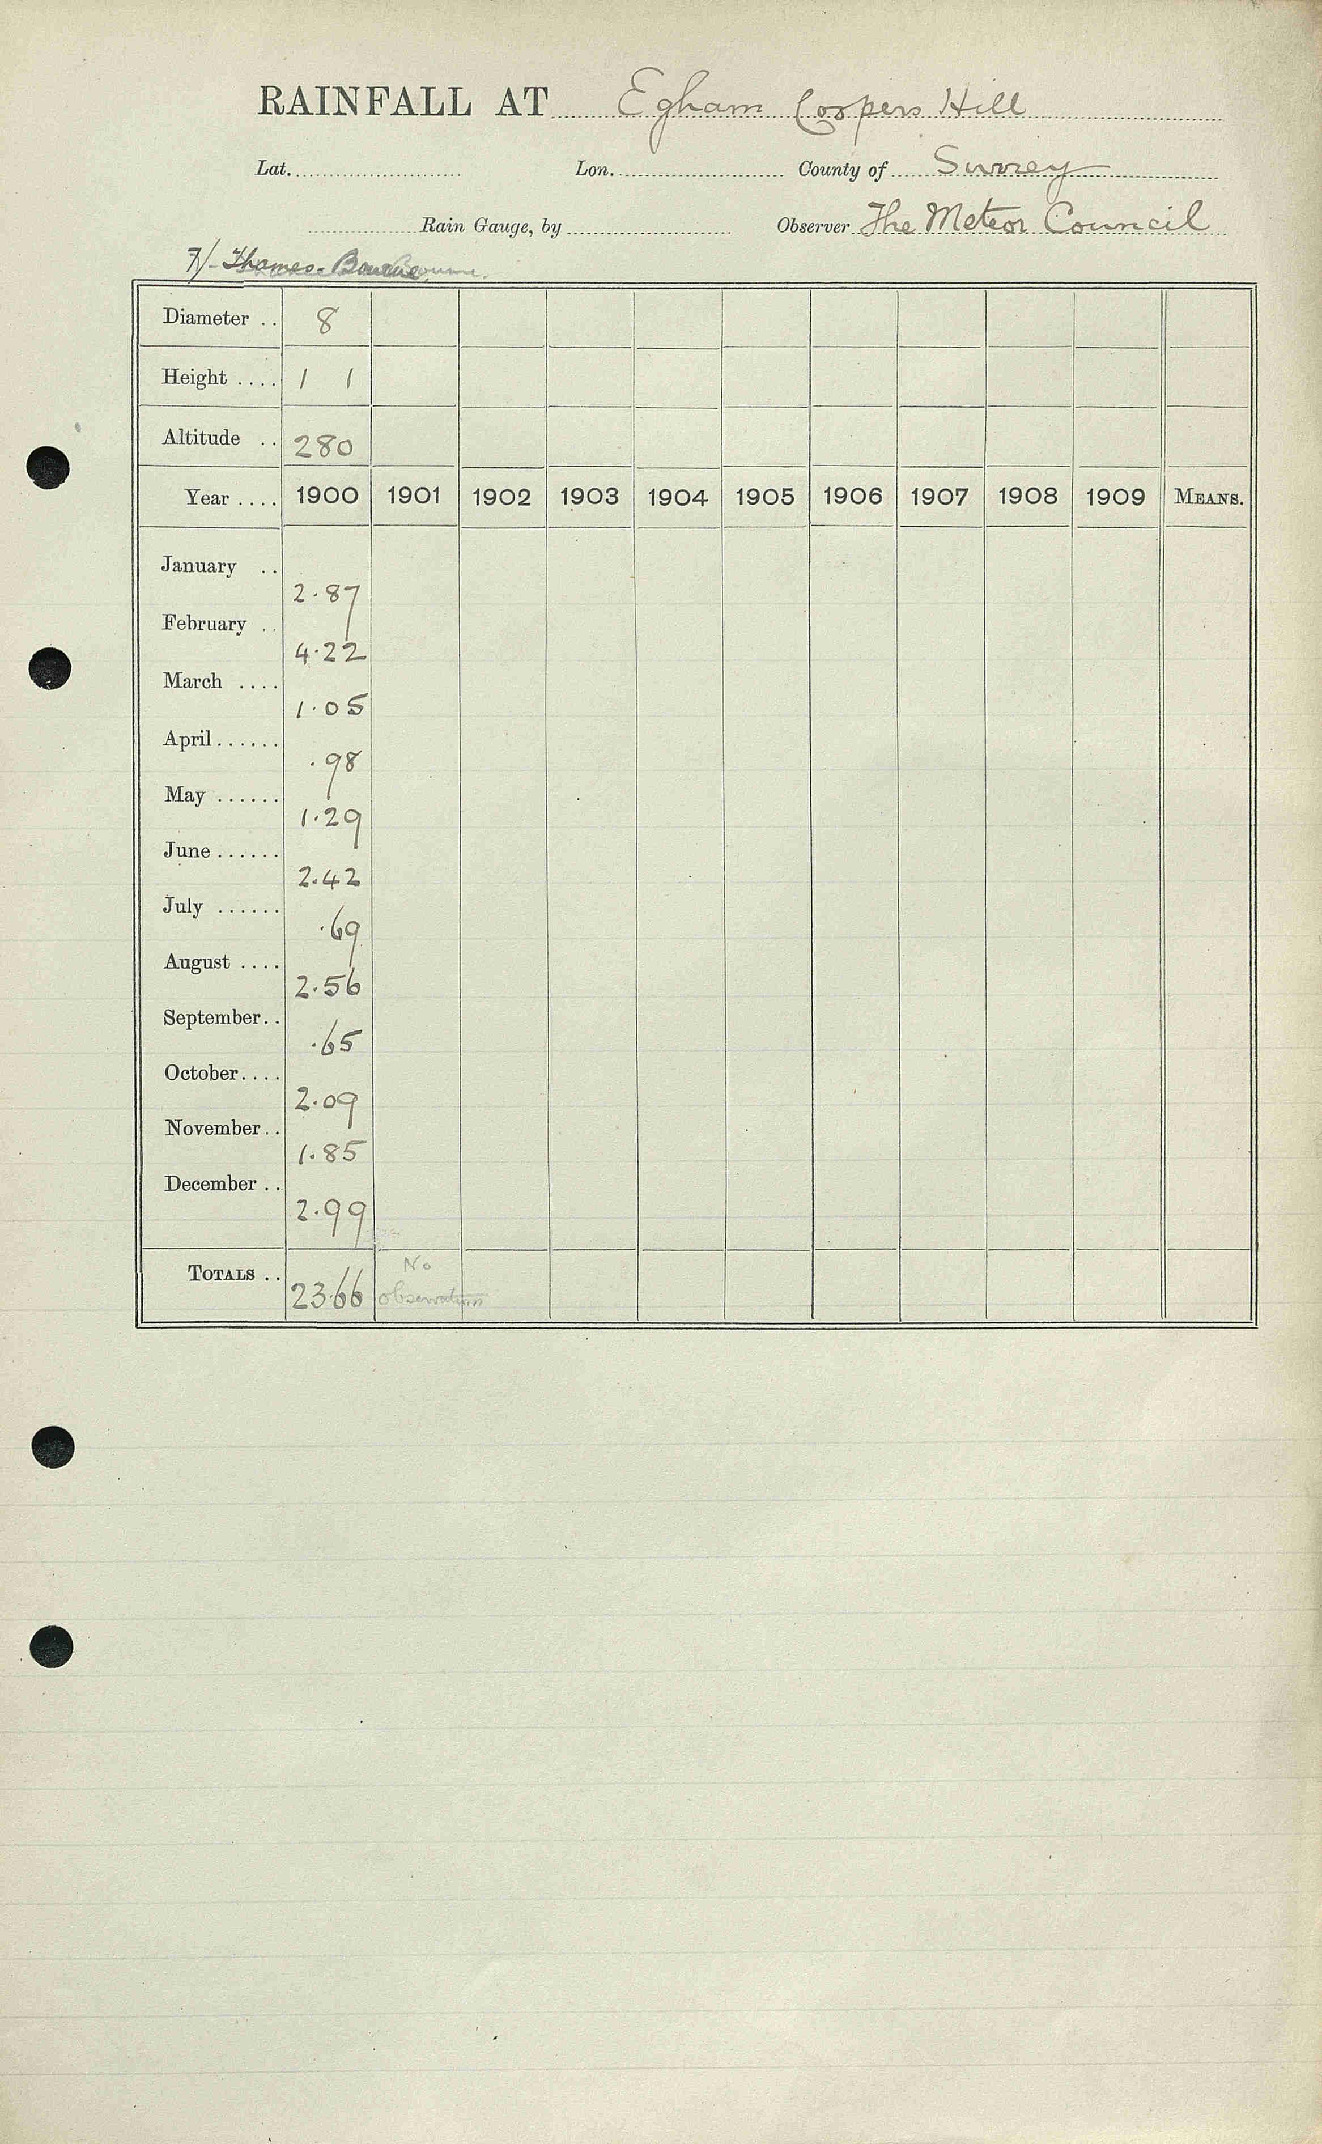 RAINFALL AT Egham Coopers Hill
Lat. Lon. County of Surrey
Rain Gauge, by Observer The Meteor Council
7/- Thames-Bourne
Diameter .. 8
Height .... 1 1
Altitude .. 280
Year .... 1900 1901 1902 1903 1904 1905 1906 1907 1908 1909 MEANS.
January .. 2.87
February .. 4.22
March .... 1.05
April ...... .98
May ...... 1.29
June ...... 2.42
July ...... .69
August .... 2.56
September.. .65
October.... 2.09
November.. 1.85
December .. 2.99
TOTALS .. 23.66 No observations